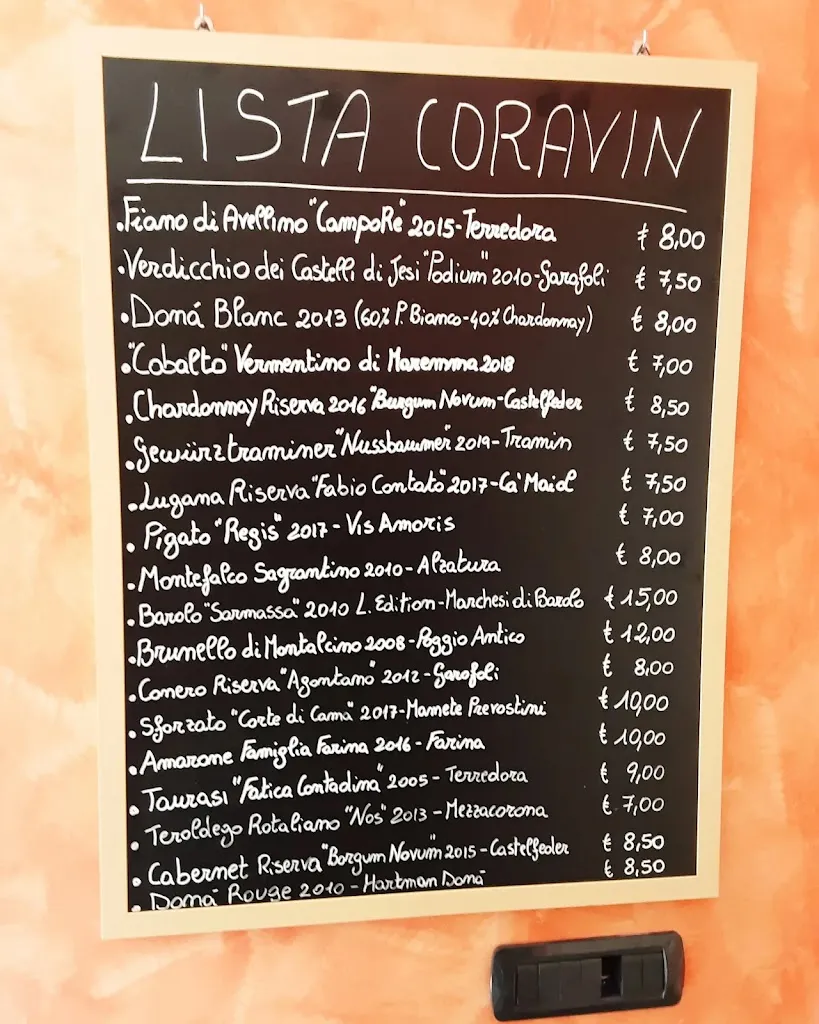 LISTA CORAVIN
• Fiano di Avellino "CampoRe" 2015 - Terredora € 8,00
• Verdicchio dei Castelli di Jesi "Podium" 2010 - Garofoli € 7,50
• Doná Blanc 2013 (60% P. Bianco - 40% Chardonnay) € 8,00
• "Cobalto" Vermentino di Maremma 2018 € 7,00
• Chardonnay Riserva 2016 "Burgum Novum - Castelfeder € 8,50
• Gewürztraminer "Nussbaumer" 2019 - Tramin € 7,50
• Lugana Riserva "Fabio Contato" 2017 - Ca' Maiol € 7,50
• Pigato "Regis" 2017 - Vis Amoris € 7,00
• Montefalco Sagrantino 2010 - Alzatura € 8,00
• Barolo "Sarmassa" 2010 L. Edition - Marchesi di Barolo € 15,00
• Brunello di Montalcino 2008 - Poggio Antico € 12,00
• Conero Riserva "Agontano" 2012 - Garofoli € 8,00
• Sforzato "Corte di Cama" 2017 - Mamete Prevostini € 10,00
• Amarone Famiglia Farina 2016 - Farina € 10,00
• Taurasi "Fatica Contadina" 2005 - Terredora € 9,00
• Teroldego Rotaliano "Nos" 2013 - Mezzacorona € 7,00
• Cabernet Riserva "Borgum Novum" 2015 - Castelfeder € 8,50
• Doná Rouge 2010 - Hartman Doná € 8,50